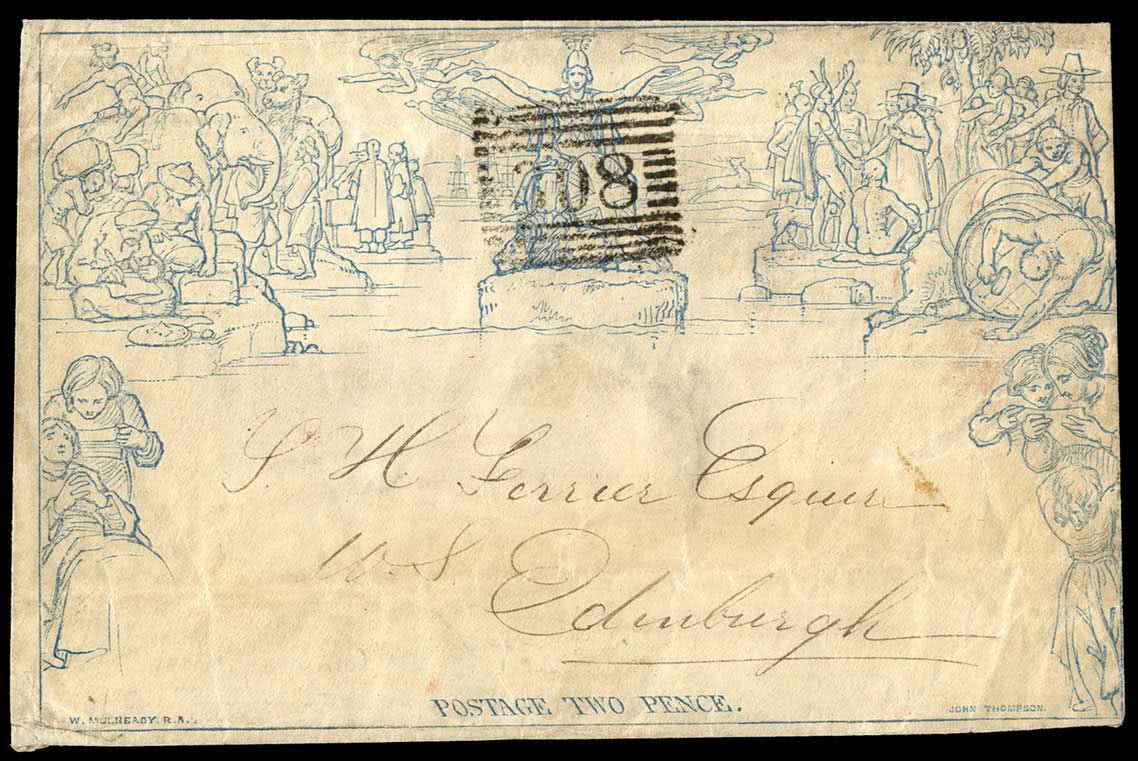 108
S. H. Ferrier Esquire
W. S.
Edinburgh
POSTAGE TWO PENCE.
W. MULREADY. R.A.
JOHN THOMPSON.